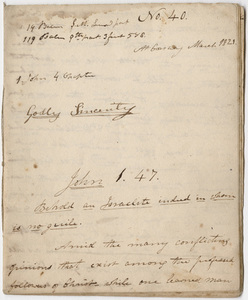 No. 40.
March 1821
1 John 4 Chapter
Godly Sincerity
John 1. 47.
Behold an Israelite indeed in whom
is no guile.
Amid the many conflicting
opinions that exist among the professed
followers of Christ while one learned man